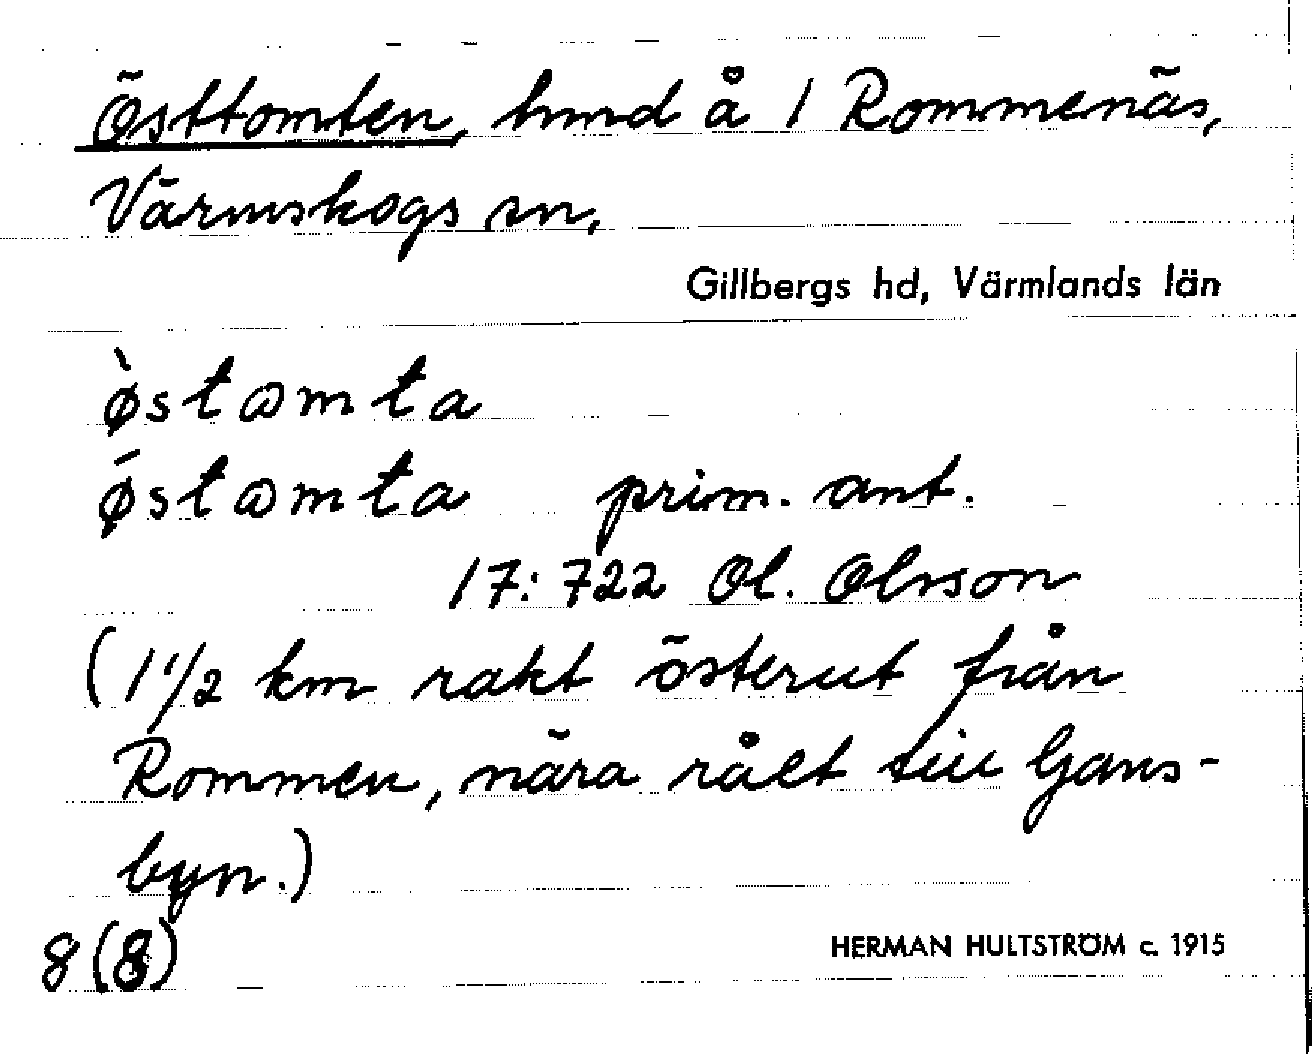 Östtomten, hmd å 1 Rommenäs,
Värmskogs sn,
Gillbergs hd, Värmlands län
ø̀stωmta
ǿstωmta prim. ant.
17:722 Ol. Olsson
(1 1/2 km rakt österut från
Rommen, nära rået till Gans-
byn.)
8 (8)
HERMAN HULTSTRÖM c. 1915